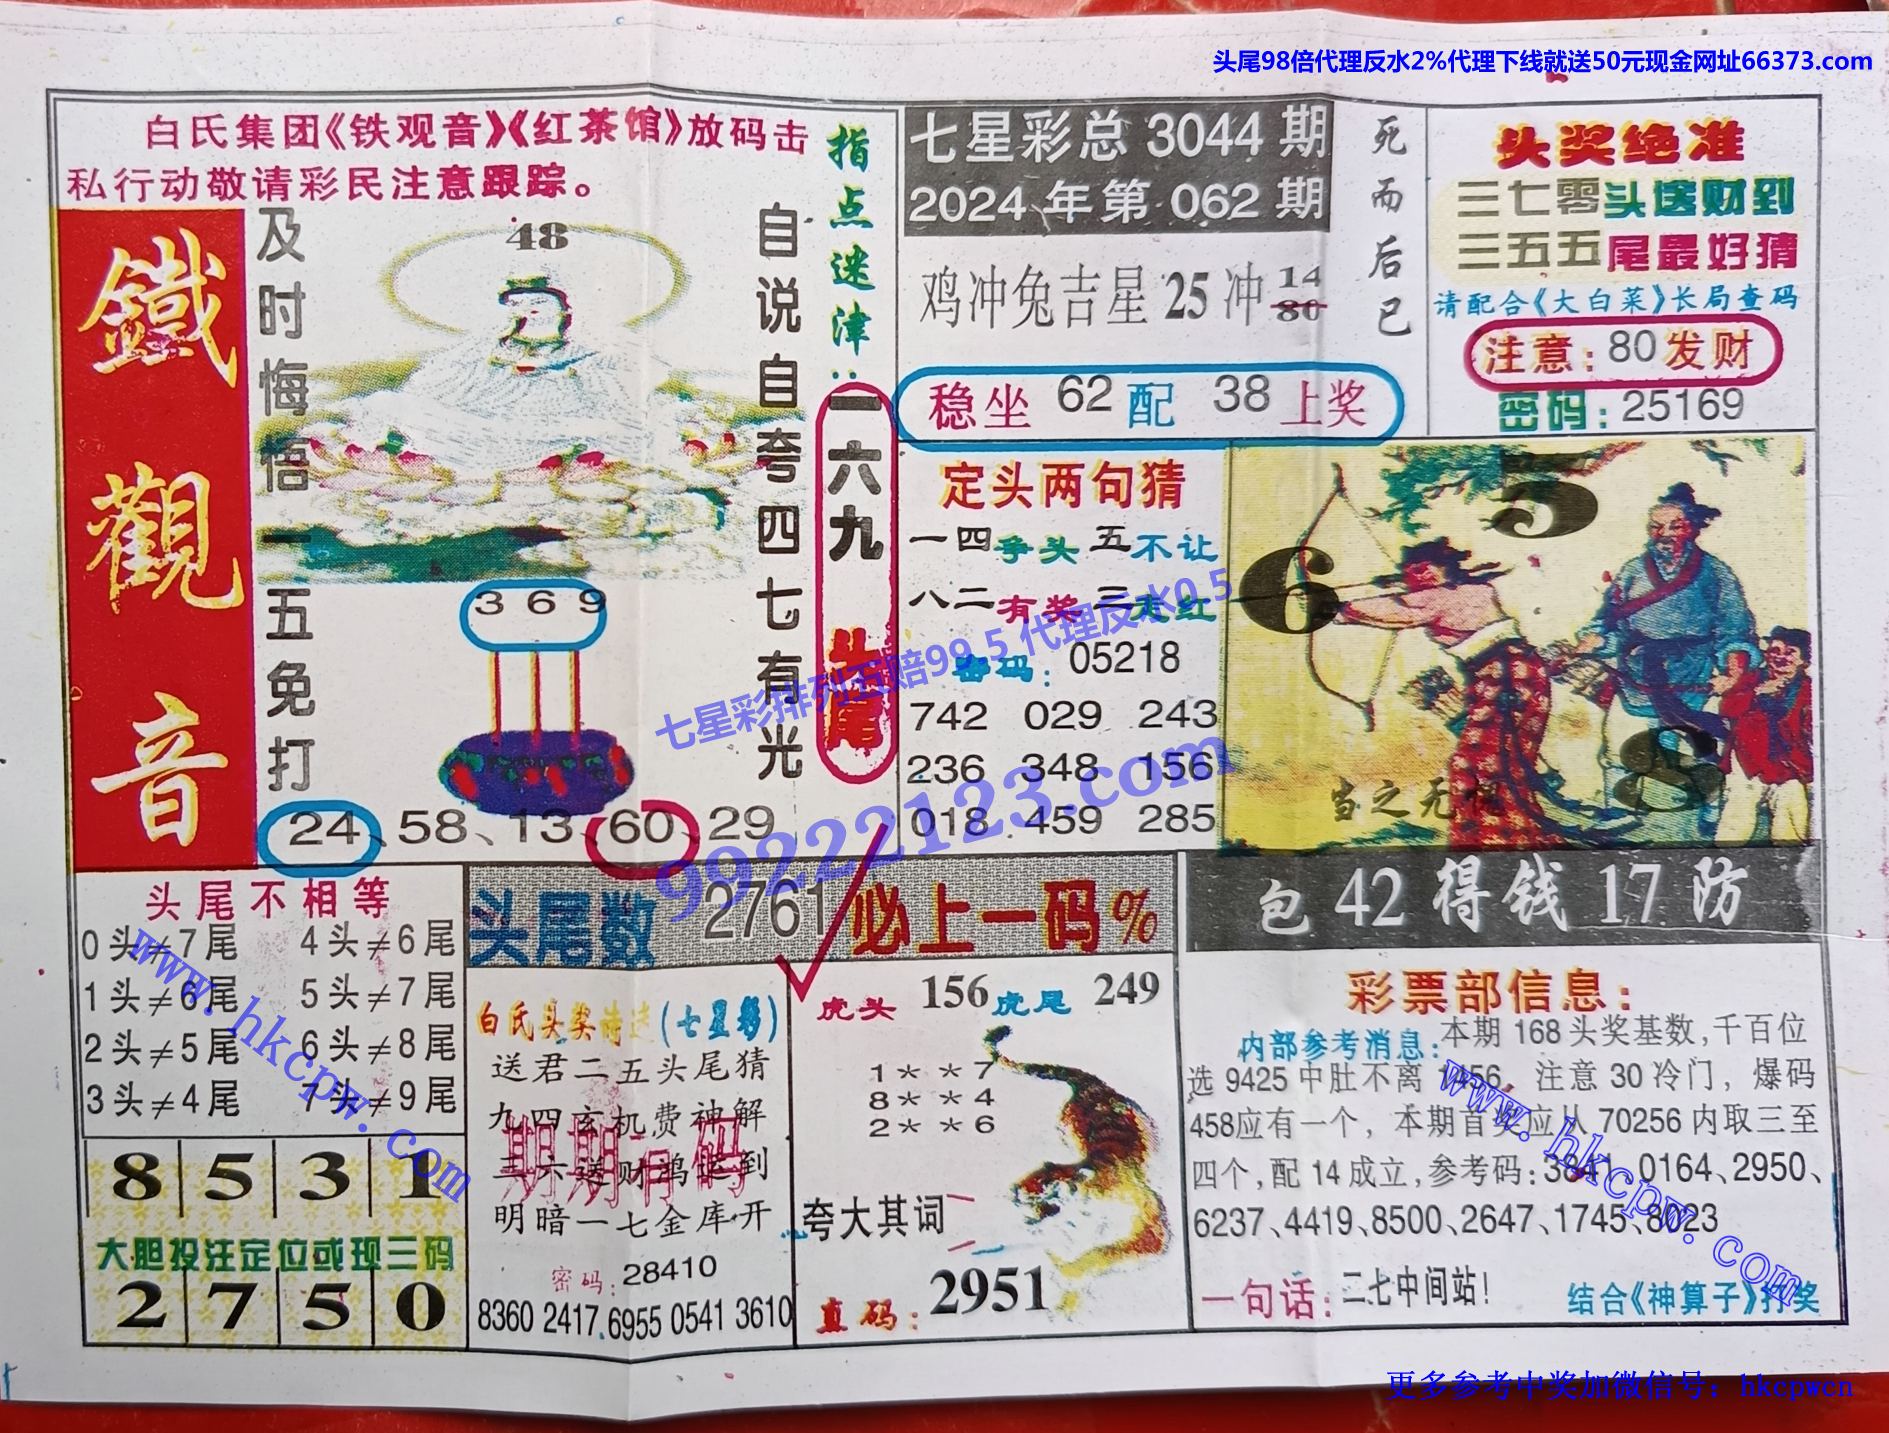 头尾98倍代理反水2%代理下线就送50元现金网址66373.com
白氏集团《铁观音》《红茶馆》放码击
私行动敬请彩民注意跟踪。
鐵觀音
及时悔悟一五免打
48
自说自夸四七有光
指点迷津:
一六九
头尾
369
24、58、13、60、29
七星彩总 3044 期
2024 年第 062 期
鸡冲兔吉星 25 冲 14 80
死而后已
稳坐 62 配 38 上奖
头奖绝准
三七零头送财到
三五五尾最好猜
请配合《大白菜》长局查码
注意: 80 发财
密码: 25169
定头两句猜
一四争头五不让
八二有奖三走红
密码: 05218
742 029 243
236 348 156
018 459 285
5
6
8
当之无愧
七星彩排列五赔99.5 代理反水0.5
99222123.com
头尾不相等
0头≠7尾 4头≠6尾
1头≠6尾 5头≠7尾
2头≠5尾 6头≠8尾
3头≠4尾 7头≠9尾
8 5 3 1
大胆投注定位或现三码
2 7 5 0
头尾数 2761 必上一码%
白氏头奖诗选(七星彩)
送君二五头尾猜
九四玄机费神解
三六送财鸿运到
明暗一七金库开
期期有码
密码: 28410
8360 2417 6955 0541 3610
虎头 156 虎尾 249
1**7
8**4
2**6
夸大其词
直码: 2951
包 42 得钱 17 防
彩票部信息:
内部参考消息:本期 168 头奖基数,千百位
选 9425 中肚不离 1456, 注意 30 冷门, 爆码
458应有一个, 本期首奖应从 70256 内取三至
四个,配 14 成立,参考码:3841、0164、2950、
6237、4419、8500、2647、1745、8023
一句话: 二七中间站!
结合《神算子》打奖
www.hkcpw.com
www.hkcpw.com
更多参考中奖加微信号: hkcpwcn